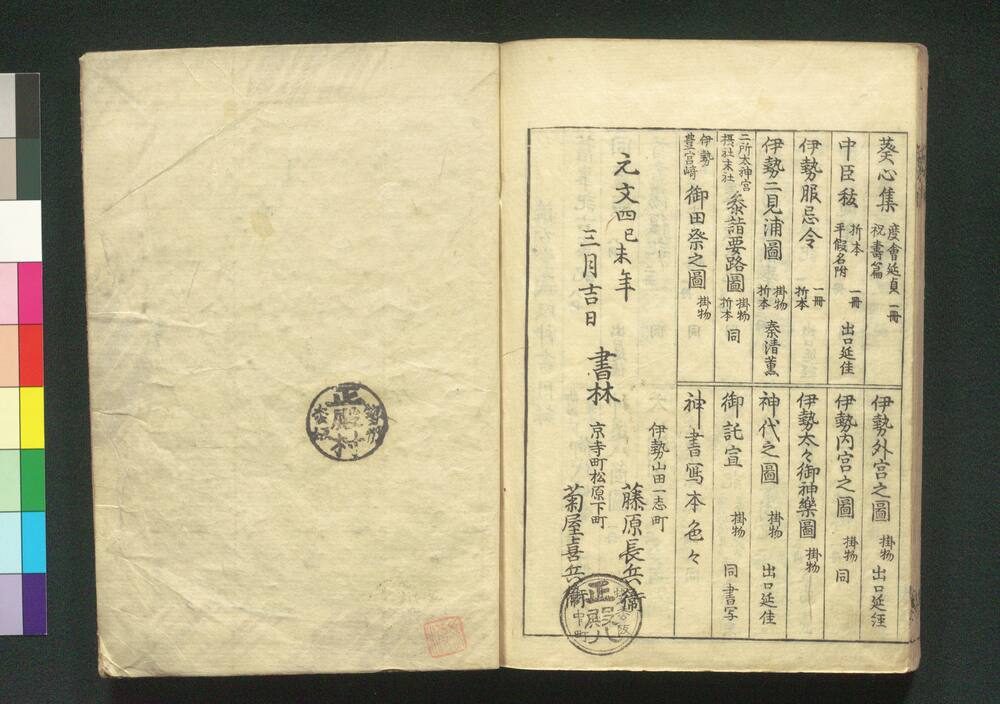 葵心集 度會延貞 祝壽篇 一冊
中臣秡 折本 平假名附 一冊 出口延佳
伊勢服忌令 一冊 折本
伊勢二見浦圖 掛物 折本 秦清薫
二所太神宮 摂社末社 叅詣要路圖 掛物 折本 同
伊勢 豊宮﨑 御田祭之圖 掛物 同
伊勢外宮之圖 掛物 出口延経
伊勢内宮之圖 掛物 同
伊勢太々御神樂圖 掛物
神代之圖 掛物 出口延佳
御託宣 掛物 同書写
神書寫本色々
元文四己未年
三月吉日
書林
伊勢山田一志町
藤原長兵衞
京寺町松原下町
菊屋喜兵衞
正
正